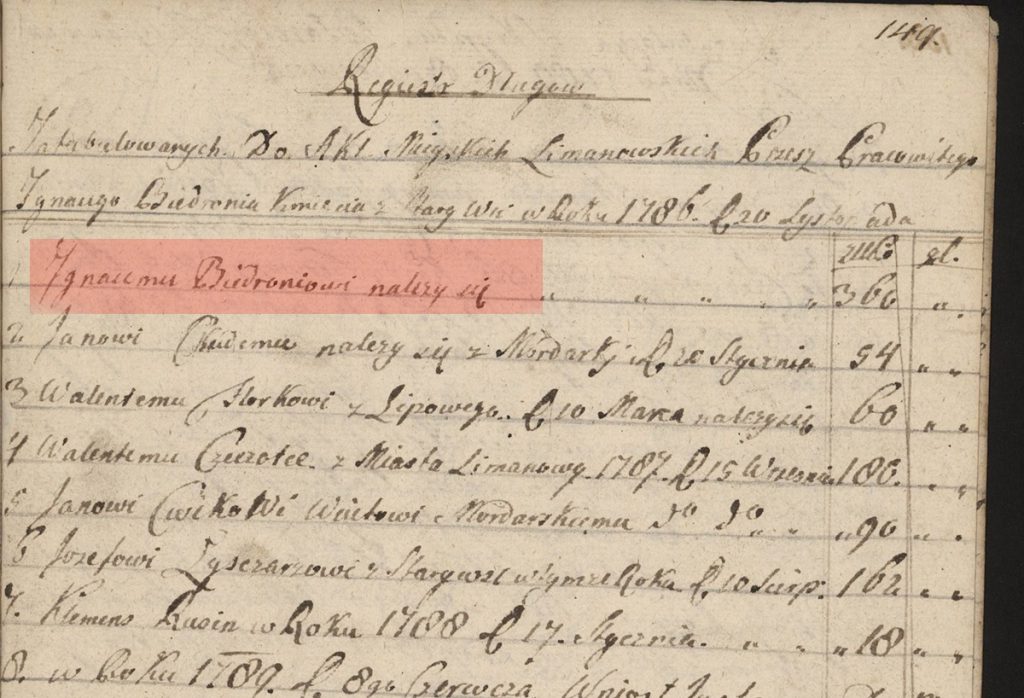 149.
Regiestr Długow
Jntabulowanych Do Akt Mieyskich Limanowskich Przesz Pracowitego
Jgnacego Biedronia Kmiecia z Stary Wsi w Roku 1786. D 20 Lystopada
zł. gr.
1 Jgnacemu Biedroniowi nalezy się " " " " 366 " .
2. Janowi Chudemu nalezy się z Mordarky D 28 Stycznia 54 " "
3 Walentemu Florkowi z Lipowego. D 10 Marca nalezy się 60 " "
4 Walentemu Czeczotce z Miasta Limanowy. 1787. D 15 Wrzesnia 186. . "
5 Janowi CwikoWi Wuitowi Mordarskiemu do do " " 90 " .
6 Jozefowi Lysczarzowi z Stary wsi w tymze Roku D 10 Sierp: 162 " "
7. Klemens Rusin w Roku 1788 D 17. Stycznia. " " " 18 " "
8. w Roku 1789. D 8go Czerwcza Wniosł